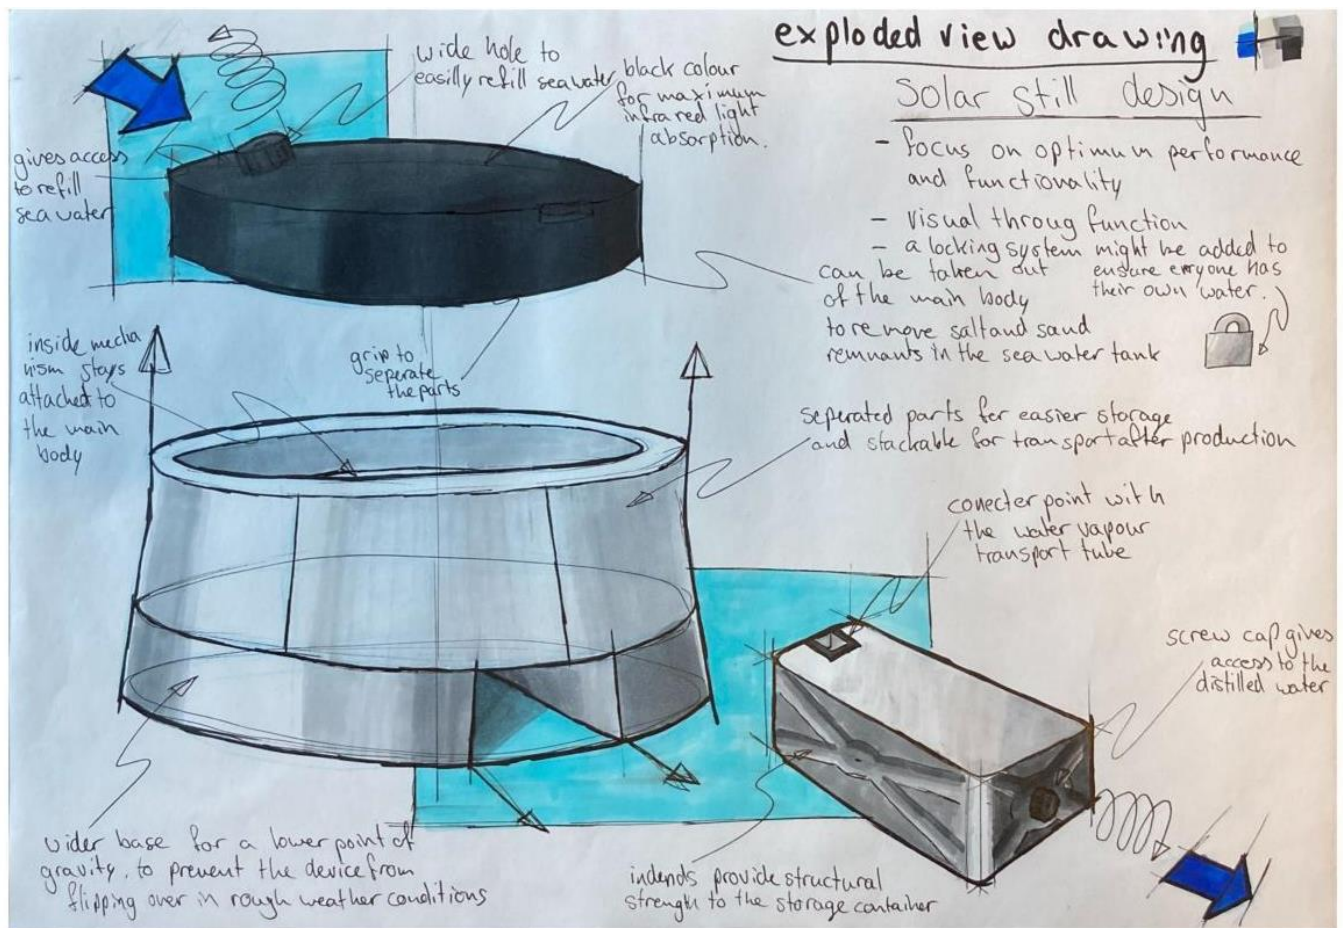 exploded view drawing
Solar still design
- focus on optimum performance
and functionality
- visual throug function
- a locking system might be added to
ensure eryone has
their own water.
wide hole to
easilly refill seawater
black colour
for maximum
infra red light
absorption.
gives access
to refill
sea water
can be taken out
of the main body
to remove salt and sand
remnants in the sea water tank
inside mecha
nism stays
attached to
the main
body
grip to
seperate
the parts
seperated parts for easier storage
and stackable for transport after production
conecter point with
the water vapour
transport tube
screw cap gives
access to the
distilled water
wider base for a lower point of
gravity, to prevent the device from
flipping over in rough weather conditions
indends provide structural
strength to the storage container